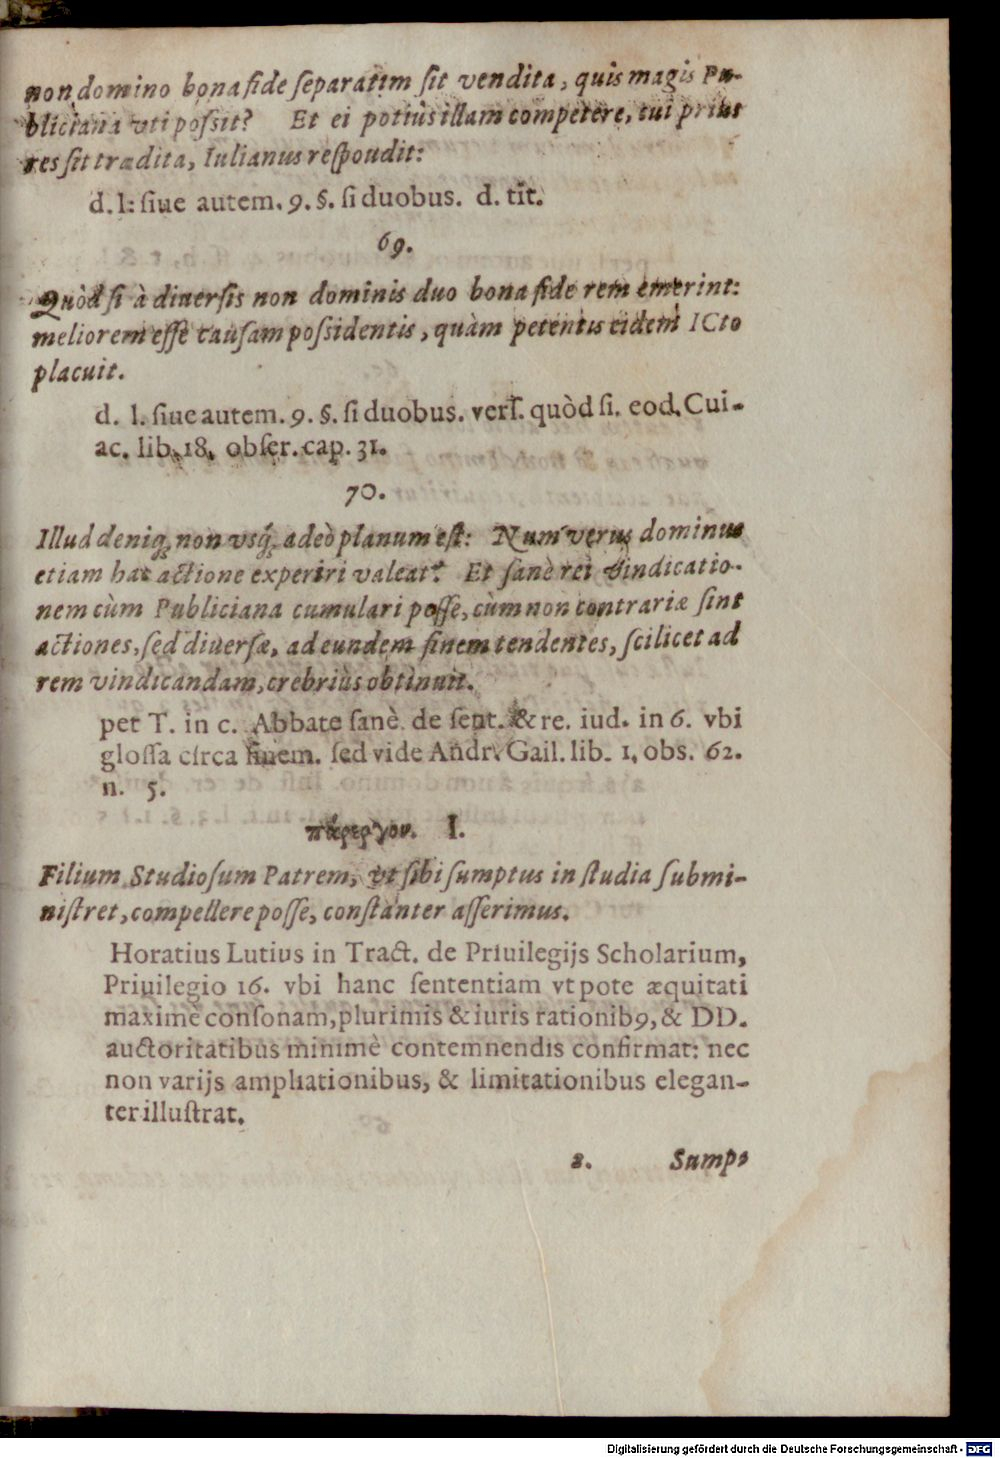 non domino bona fide ſeparatim ſit vendita, quis magis Pu-
bliciana vti poſsit? Et ei potiùs illam competere, cui prius
res ſit tradita, Iulianus reſpoudit:
d. l: ſiue autem. 9. §. ſi duobus. d. tit.
69.
Quòd ſi à diuerſis non dominis duo bona fide rem emerint:
meliorem eſſe cauſam poſsidentis, quàm petentis eidem ICto
placuit.
d. l. ſiue autem. 9. §. ſi duobus. verſ. quòd ſi. eod. Cui-
ac. lib. 18. obſer. cap. 31.
70.
Illud deniq; non vsq́; adeò planum eſt: Num verus dominus
etiam hac actione experiri valeat? Et ſanè rei vindicatio-
nem cùm Publiciana cumulari poſſe, cùm non contrariæ ſint
actiones, ſed diuerſæ, ad eundem finem tendentes, ſcilicet ad
rem vindicandam, crebriùs obtinuit.
per T. in c. Abbate ſanè. de ſent. & re. iud. in 6. vbi
gloſſa circa finem. ſed vide Andr. Gail. lib. 1. obs. 62.
n. 5.
πάρεργον. I.
Filium Studioſum Patrem, vt ſibi ſumptus in ſtudia ſubmi-
niſtret, compellere poſſe, conſtanter aſſerimus.
Horatius Lutius in Tract. de Priuilegijs Scholarium,
Priuilegio 16. vbi hanc ſententiam vt pote æquitati
maximè conſonam, plurimis & iuris rationib9, & DD.
auctoritatibus minimè contemnendis confirmat: nec
non varijs ampliationibus, & limitationibus elegan-
ter illuſtrat.
2. Sump-
Digitalisierung gefördert durch die Deutsche Forschungsgemeinschaft - DFG